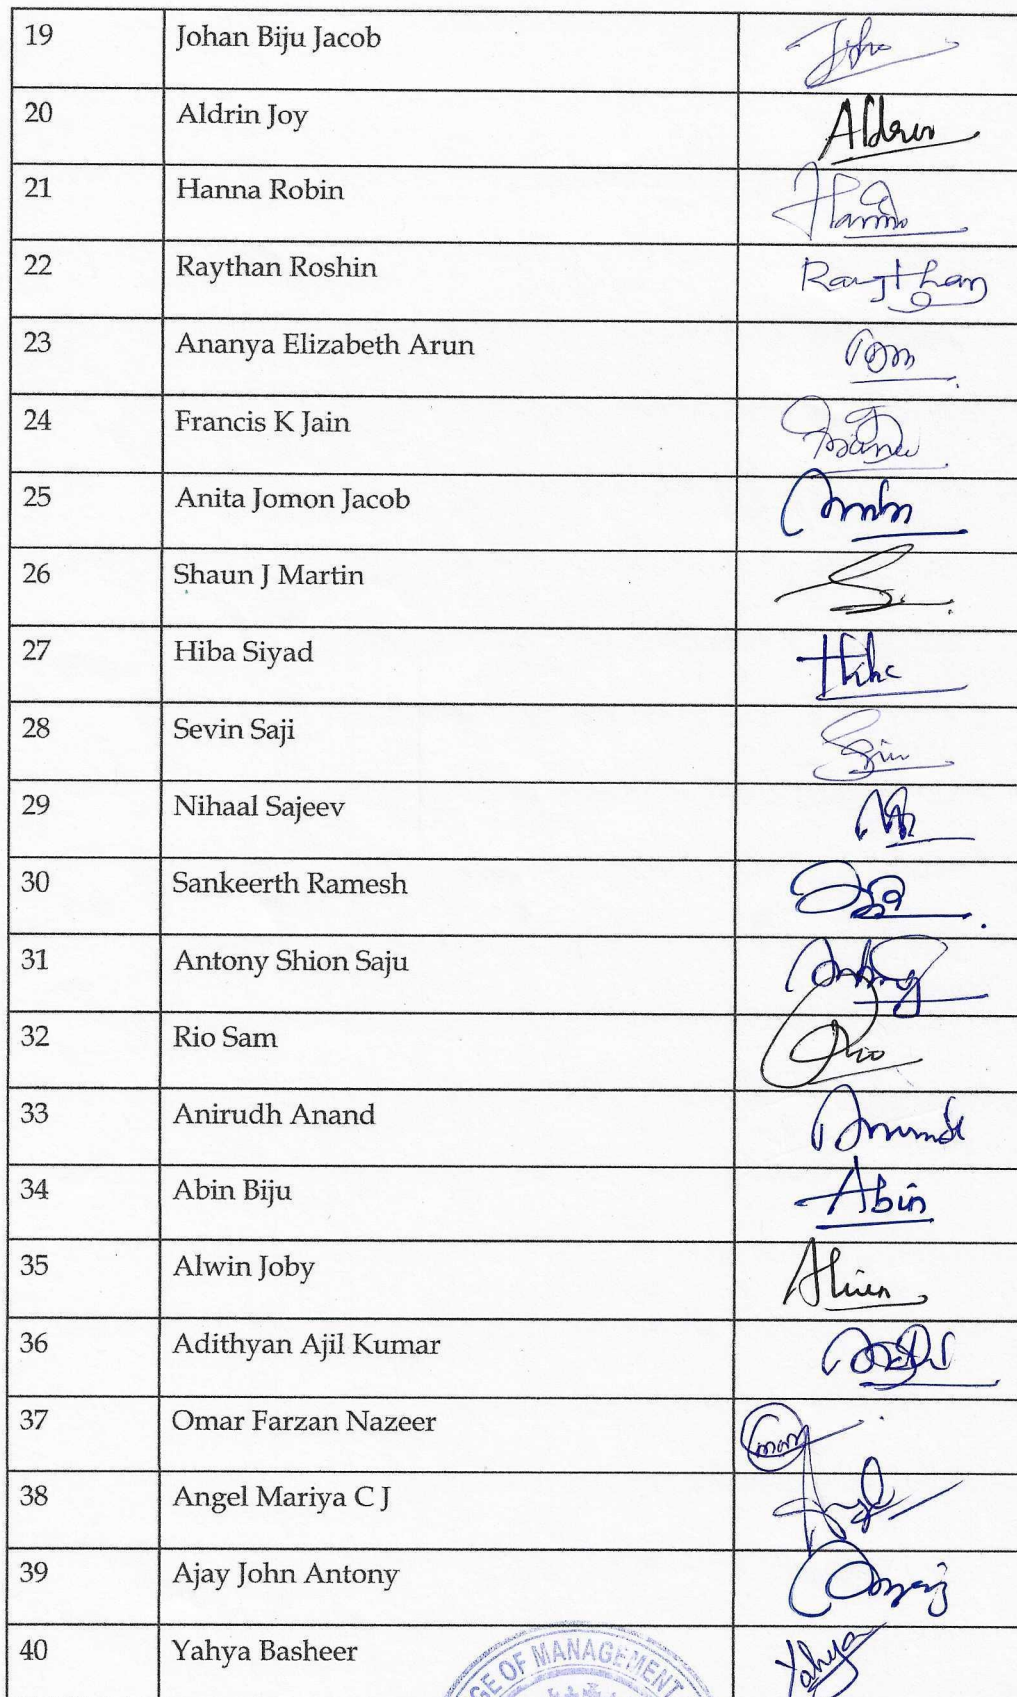 19 Johan Biju Jacob
20 Aldrin Joy Aldrin
21 Hanna Robin Hanna
22 Raythan Roshin Raythan
23 Ananya Elizabeth Arun
24 Francis K Jain
25 Anita Jomon Jacob
26 Shaun J Martin
27 Hiba Siyad Hiba
28 Sevin Saji
29 Nihaal Sajeev
30 Sankeerth Ramesh
31 Antony Shion Saju Antony
32 Rio Sam Rio
33 Anirudh Anand
34 Abin Biju Abin
35 Alwin Joby Alwin
36 Adithyan Ajil Kumar
37 Omar Farzan Nazeer Omar
38 Angel Mariya C J Angel
39 Ajay John Antony
40 Yahya Basheer Yahya
GE OF MANAGEMENT